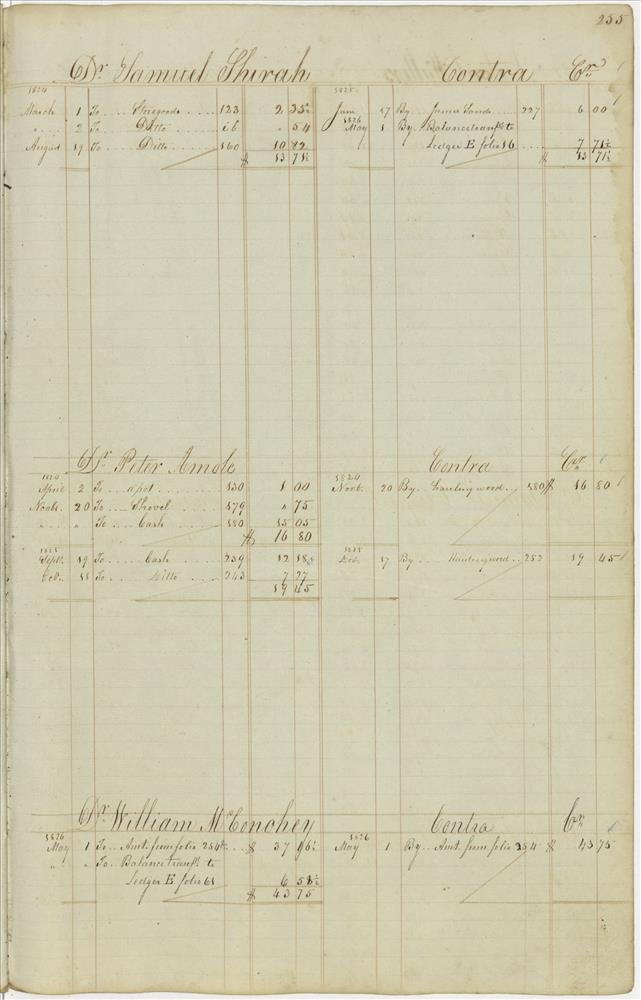 255
Dr. Samuel Shirah Contra Cr.
1824 1825
March 1 To Storegoods 123 2 35½ June 17 By James Sands 227 6 00
" 2 To Ditto 26 " 54 1826 May 1 By Balance transfd to
August 19 To Ditto 160 10 82 Ledger E folio 16 7 71½
$ 13 71½ $ 13 71½
Dr. Peter Amole Contra Cr.
1824 1824
April 2 To a pot 130 1 00 Novb. 20 By hauling wood 180 $ 16 80
Novb. 20 To Shovel 179 " 75
" " To Cash 180 15 05
$ 16 80
1825 1825
Sept. 19 To Cash 239 12 18 Dec. 17 By Hauling wood 252 19 45
Oct. 11 To Ditto 243 7 27
19 45
Dr. William McConohey Contra Cr.
1826 1826
May 1 To Amt. from folio 254 $ 37 16½ May 1 By Amt. from folio 254 $ 43 75
" " To Balance transfd to
Ledger E folio 61 6 58½
$ 43 75